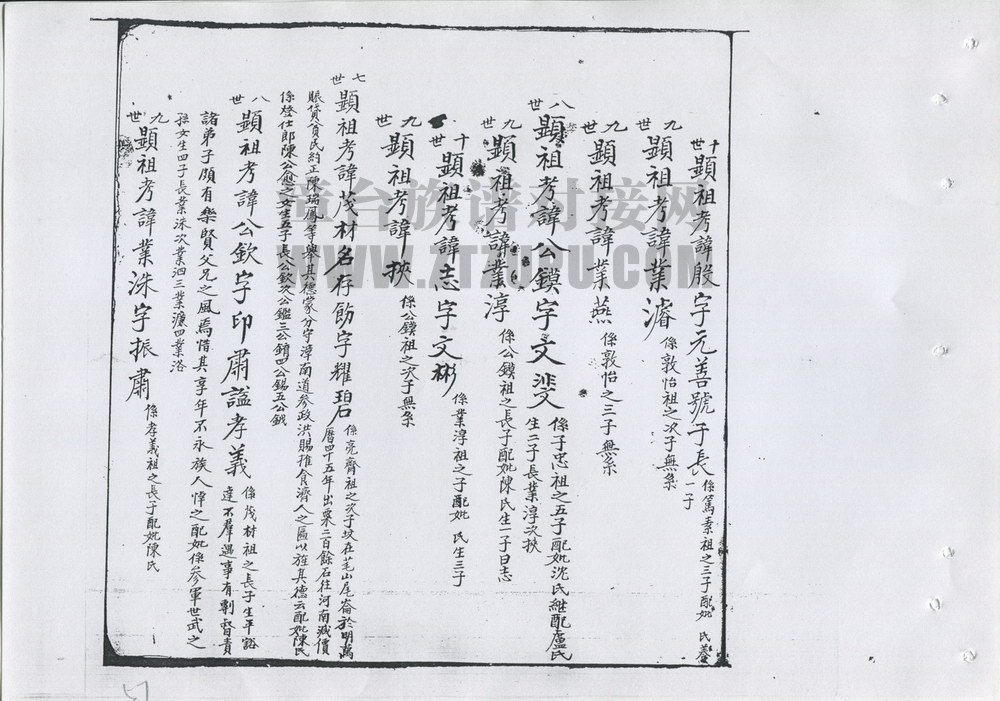 十世 顯祖考諱殷字元善號子長 係篤素祖之三子配妣 氏養一子
九世 顯祖考諱業濬 係敦怡祖之次子無系
九世 顯祖考諱業燕 係敦怡之三子無系
八世 顯祖考諱公鏌字文 係子忠祖之五子配妣沈氏継配盧氏生二子長業淳次挾
九世 顯祖考諱業淳 係公鏌祖之長子配妣陳氏生一子曰志
十世 顯祖考諱志字文彬 係業淳祖之子配妣 氏生三子
九世 顯祖考諱挾 係公鏌祖之次子無系
七世 顯祖考諱茂材名存飭字耀 係亮齋祖之次子坟在芼山尾崙於明萬曆四十五年出粟二百餘石往河南減價
賑貸貧民約正陳瑞鳳等舉其德蒙分守漳南道參政洪賜推食濟人之匾以旌其德云配妣陳氏
係登仕郎陳公應之女生五子長公欽次公鑑三公錥四公錫五公鉞
八世 顯祖考諱公欽字印肅謚孝義 係茂材祖之長子生平豁達不羣遇事有剸督責
諸弟子頗有樂賢父兄之風焉惜其享年不永族人悼之配妣係參軍世武之
孫女生四子長業洙次業泗三業濂四業洛
九世 顯祖考諱業洙字振肅 係孝義祖之長子配妣陳氏
章台族谱对接网
WWW.ZTZUPU.COM
57